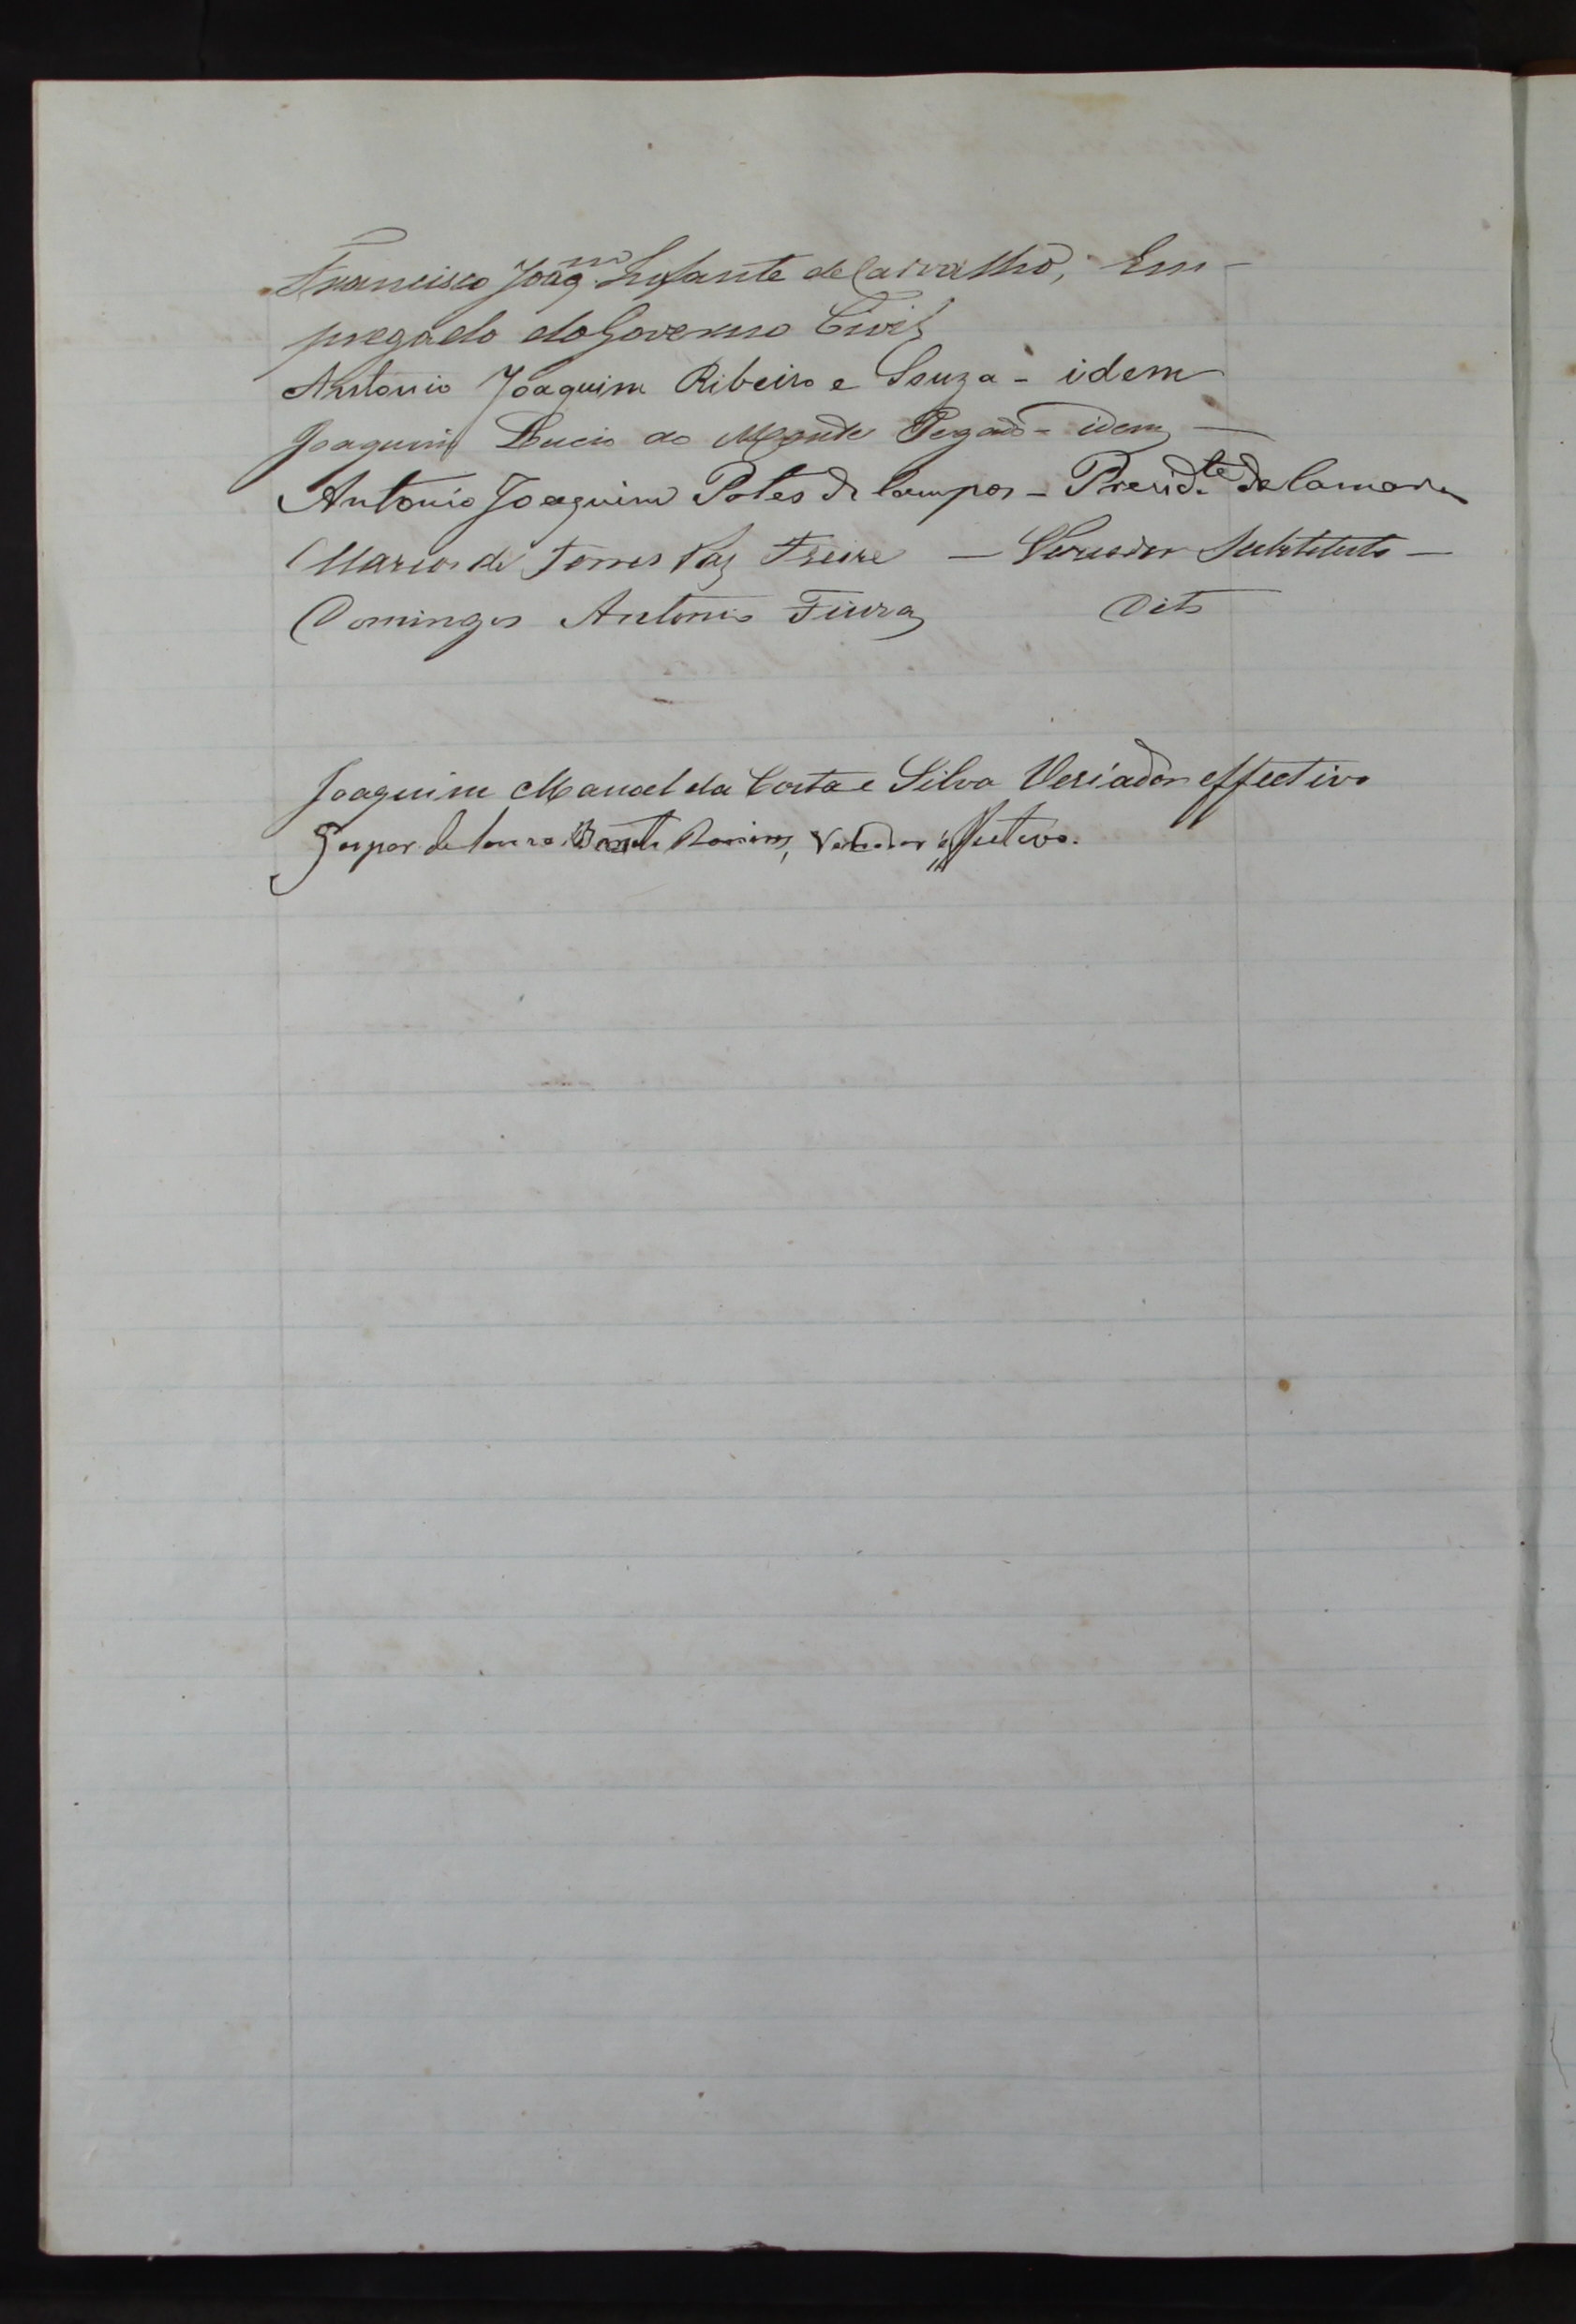 Francisco Joaq.m Infante de Carvalho, Em-
pregado do Governo Civil
Antonio Joaquim Ribeiro e Souza - idem
Joaquim Lucio do Monte Pegado - idem —
Antonio Joaquim Potes de Campos - Presid.te da Camara
Marcos de Torres Vaz Freire — Vereador Substituto —
Domingos Antonio Fiuza Dito
Joaquim Manoel da Costa e Silva Veriador effectivo
Gaspar de Vereador effectivo.